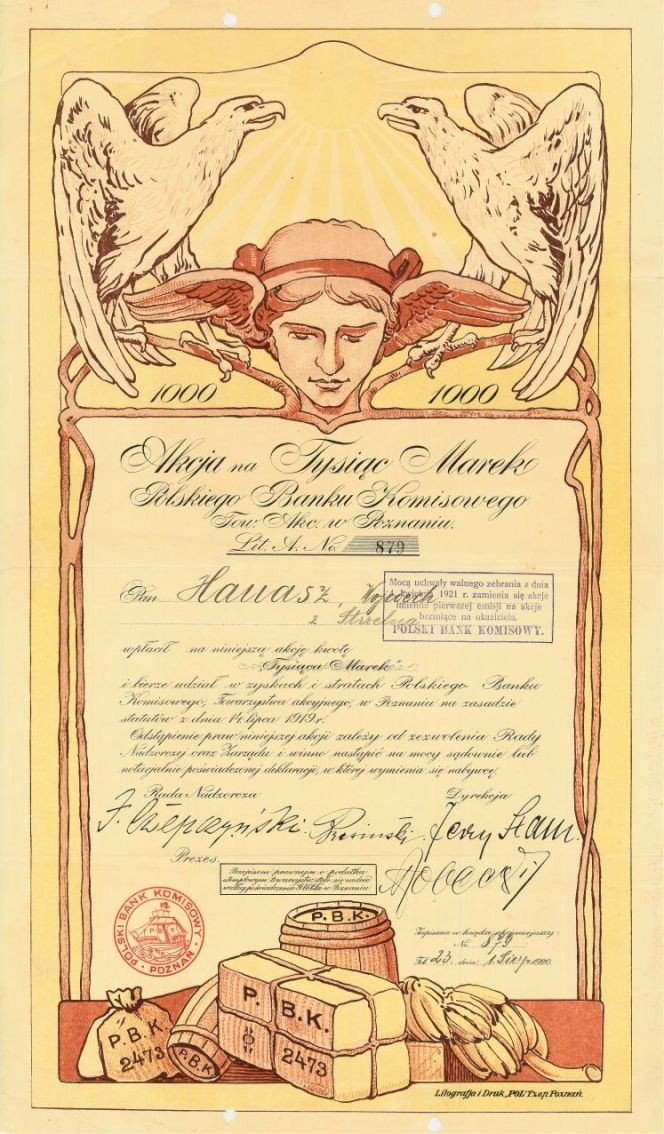 1000 1000
Akcja na Tysiąc Marek
Polskiego Banku Komisowego
Tow. Akc. w Poznaniu.
Lit. A. No. 879
Pan Hanasz, Wojciech
z Strzelna
Mocą uchwały walnego zebrania z dnia
kwietnia 1921 r. zamienia się akcje
imienne pierwszej emisji na akcje
brzmiące na okaziciela.
POLSKI BANK KOMISOWY.
wpłacił na niniejszą akcję kwotę
Tysiąca Marek
i bierze udział w zyskach i stratach Polskiego Banku
Komisowego, Towarzystwa akcyjnego, w Poznaniu na zasadzie
statutów z dnia 14 lipca 1919 r.
Odstąpienie praw niniejszej akcji zależy od zezwolenia Rady
Nadzorczej oraz Zarządu i winno nastąpić na mocy sądownie lub
notarjalnie poświadczonej deklaracji, w której wymienia się nabywcę.
Rada Nadzorcza Dyrekcja
Prezes.
Przepisom prawnym o podatku
stemplowym towarzystw stało się zadość
w Poznaniu.
POLSKI BANK KOMISOWY · POZNAŃ ·
P B K
Zapisano w księdze akcjonarjuszy:
No. 879
Fol. 23. dnia 1. 1920.
P.B.K.
P. B.K.
2473
P.B.K.
2473
P.B.K.
Litografja i Druk „POL" T.z o.p. Poznań.